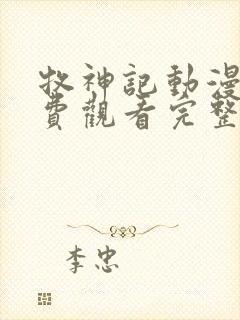 牧神記動漫
費觀看完整
李忠